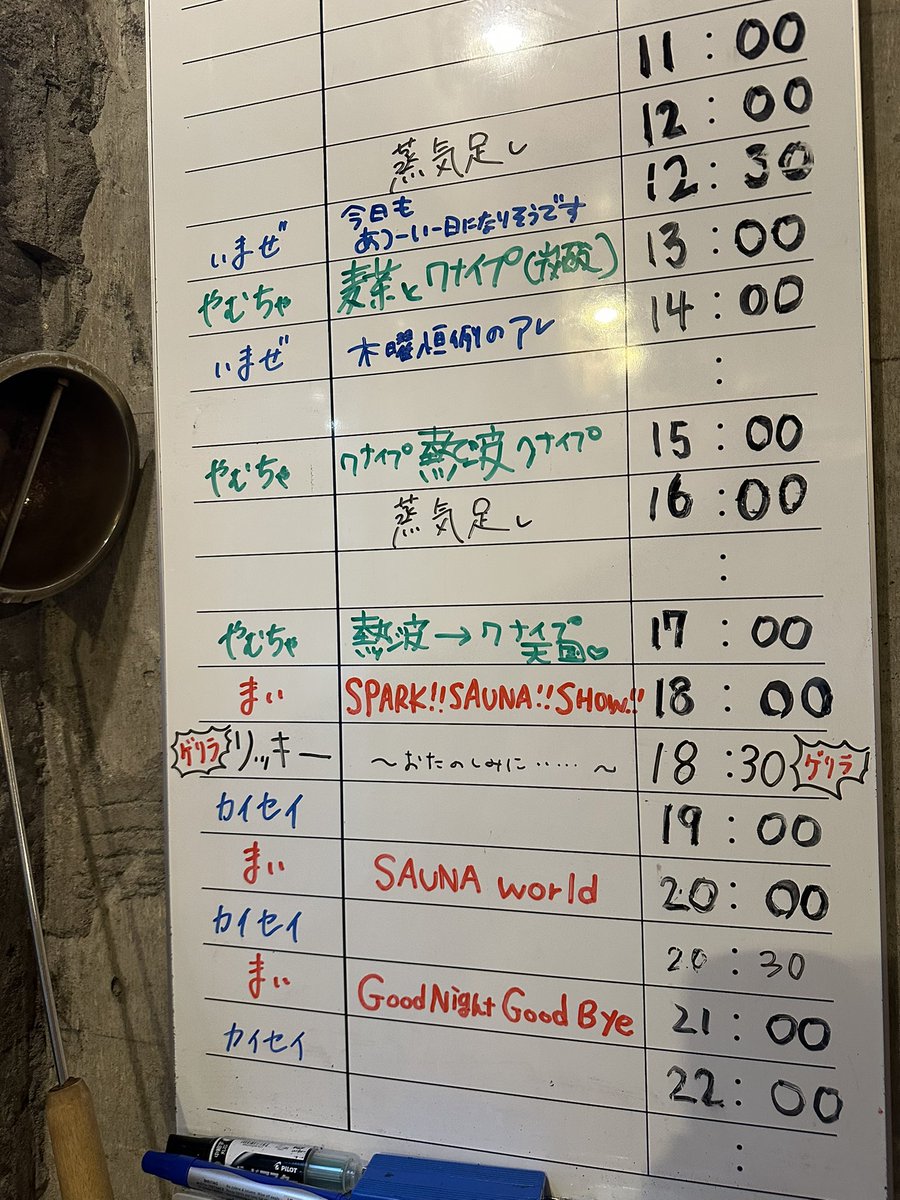 11:00
蒸気足し 12:00
いまぜ 今日も
あつーい一日になりそうです 12:30
やむちゃ 麦茶とクナイプ 13:00
いまぜ 木曜恒例のアレ 14:00
:
やむちゃ クナイプ熱波クナイプ 15:00
蒸気足し 16:00
:
やむちゃ 熱波→クナイプ
天国♡ 17:00
まい SPARK!!SAUNA!!SHOW!! 18:00
ゲリラ リッキー 〜おたのしみに……〜 18:30 ゲリラ
カイセイ 19:00
まい SAUNA world 20:00
カイセイ 20:30
まい Good Night Good Bye 21:00
カイセイ 22:00
:
PILOT